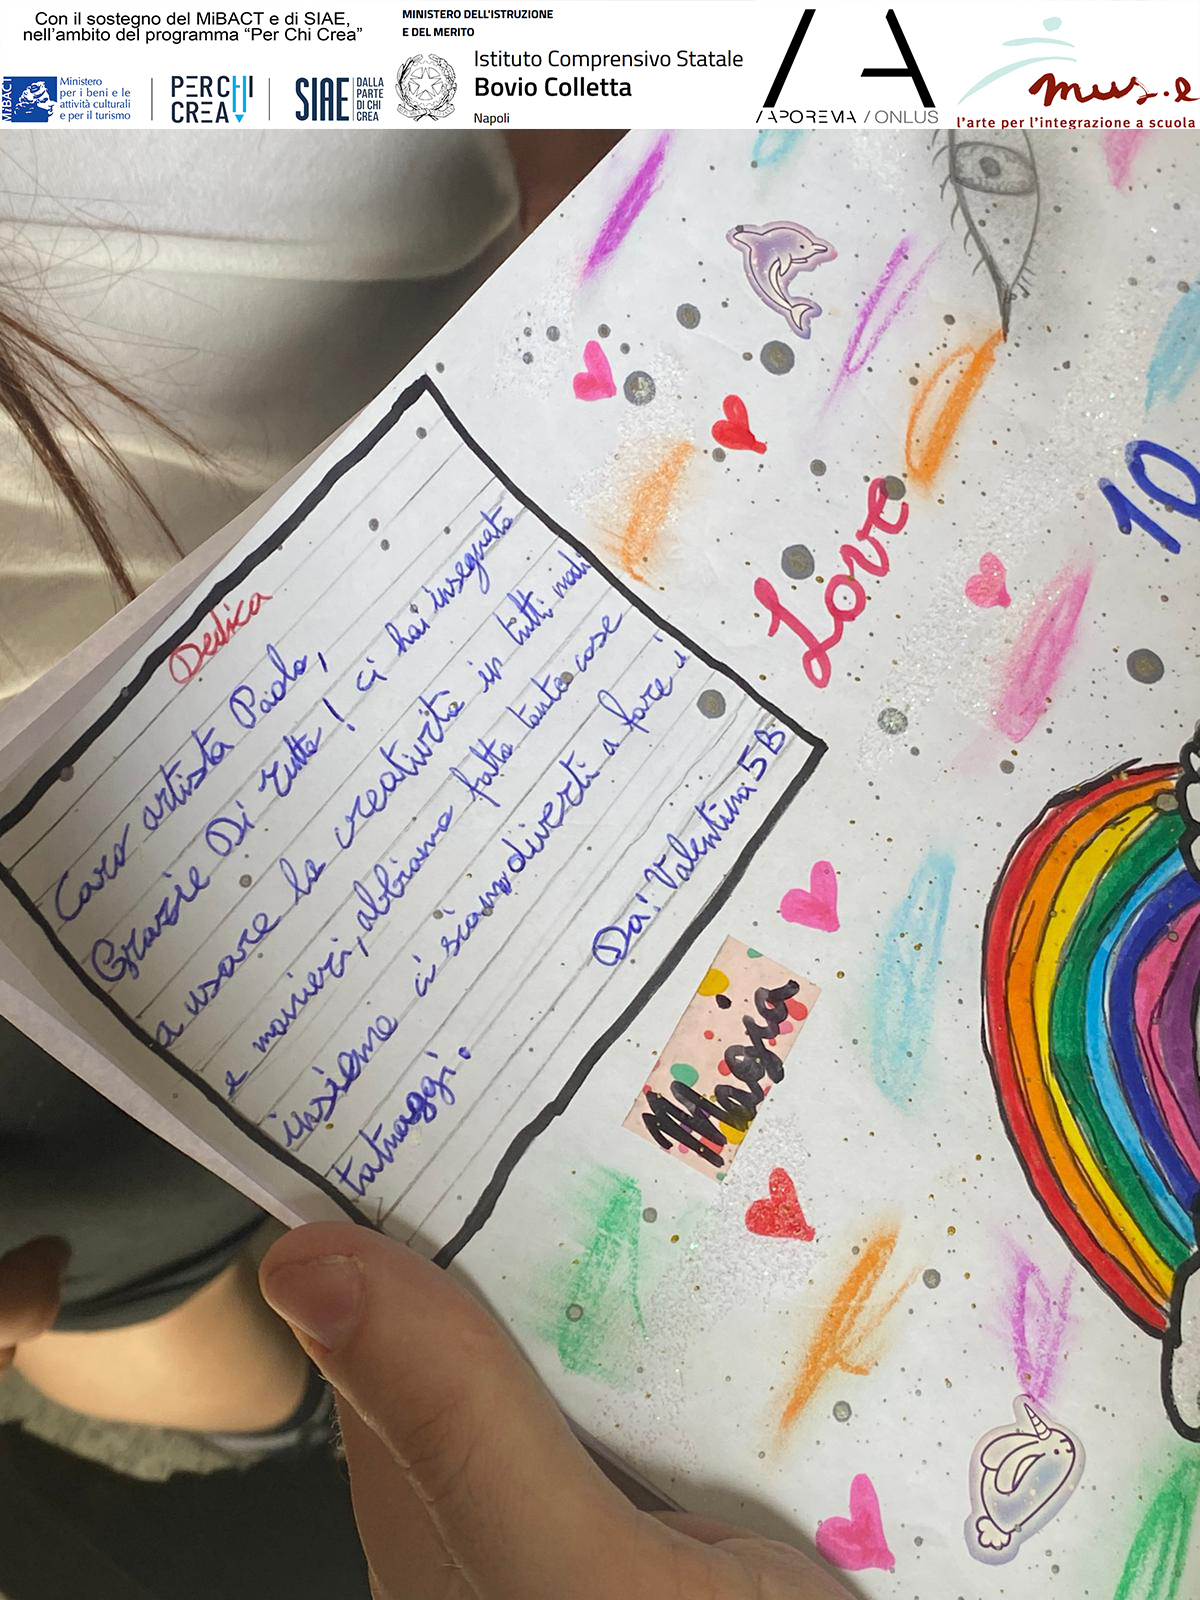 Con il sostegno del MiBACT e di SIAE,
nell'ambito del programma "Per Chi Crea"
MiBACT
Ministero
per i beni e le
attività culturali
e per il turismo
PER CHI
CREA
SIAE
DALLA
PARTE
DI CHI
CREA
MINISTERO DELL'ISTRUZIONE
E DEL MERITO
Istituto Comprensivo Statale
Bovio Colletta
Napoli
APOREMA ONLUS
mus.e
l'arte per l'integrazione a scuola
Dedica
Caro artista Paolo,
Grazie Di tutto! ci hai insegnato
a usare la creatività in tutti modi
e manieri, abbiamo fatto tante cose
insieme ci siamo divertiti a fare i
tatuaggi.
Da: Valentina 5B
Love
10
Magia